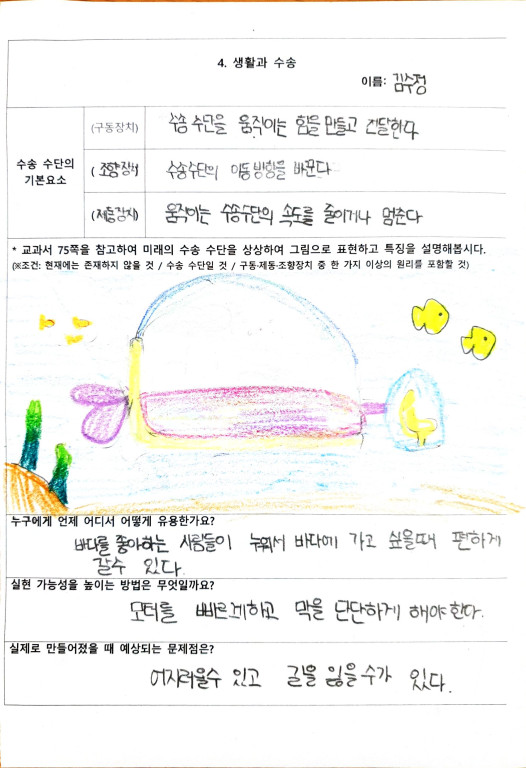 4. 생활과 수송
이름: 김수정
(구동장치) 수송 수단을 움직이는 힘을 만들고 전달한다
수송 수단의
기본요소
( 조향장치 수송수단의 이동방향을 바꾼다
(제동장치) 움직이는 수송수단의 속도를 줄이거나 멈춘다
* 교과서 75쪽을 참고하여 미래의 수송 수단을 상상하여 그림으로 표현하고 특징을 설명해봅시다.
(※조건: 현재에는 존재하지 않을 것 / 수송 수단일 것 / 구동·제동·조향장치 중 한 가지 이상의 원리를 포함할 것)
누구에게 언제 어디서 어떻게 유용한가요?
바다를 좋아하는 사람들이 누워서 바다에 가고 싶을때 편하게
갈수 있다.
실현 가능성을 높이는 방법은 무엇일까요?
모터를 빠르게하고 막을 단단하게 해야한다.
실제로 만들어졌을 때 예상되는 문제점은?
어지러울수 있고 길을 잃을 수가 있다.